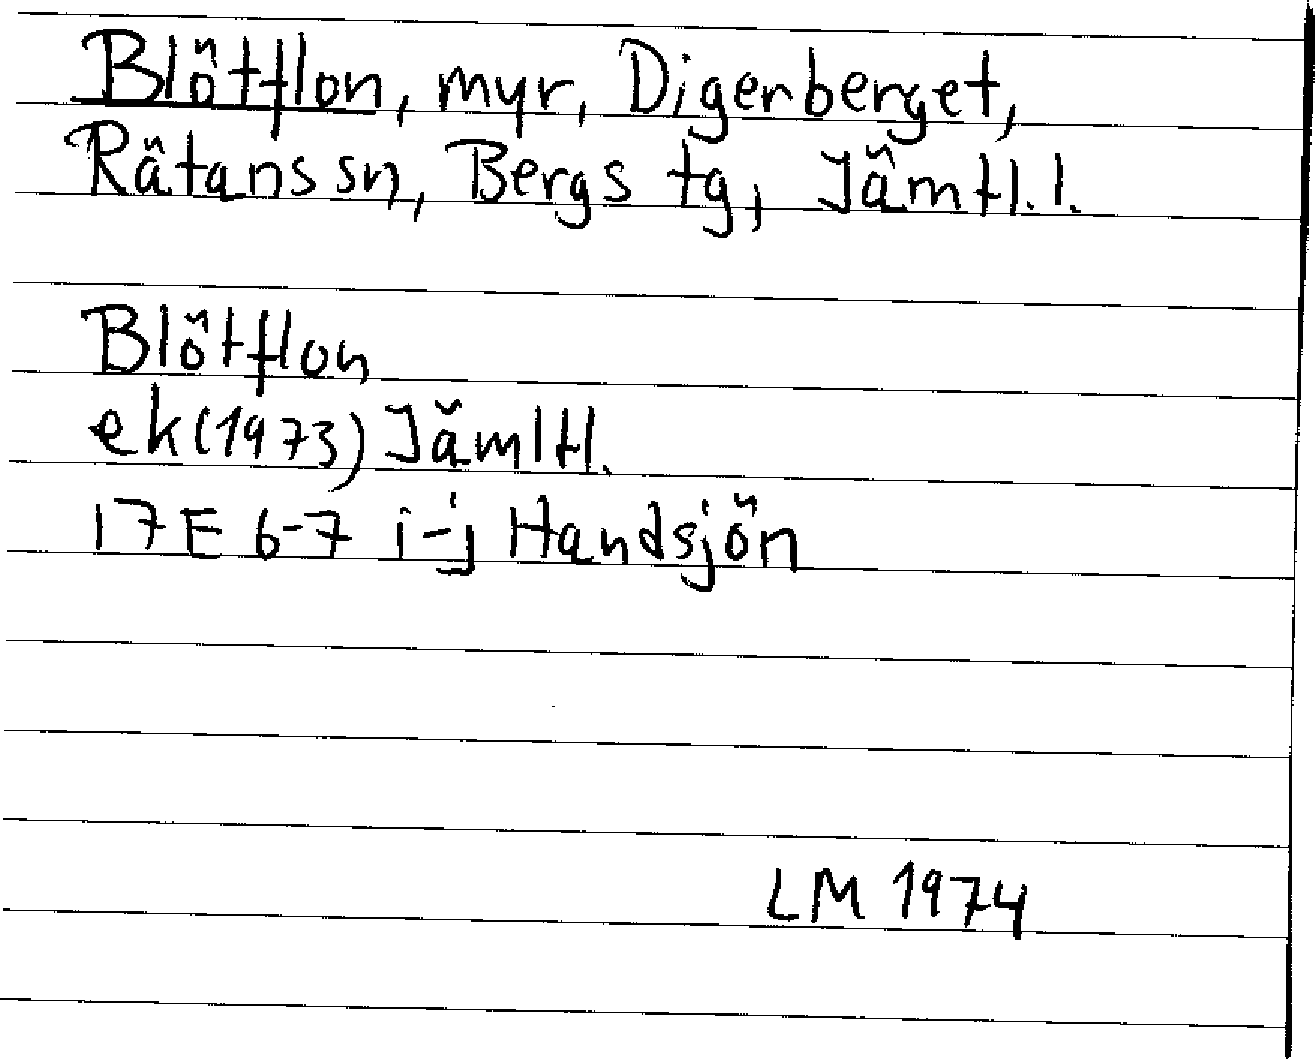 Blötflon, myr, Digerberget,
Rätans sn, Bergs tg, Jämtl.l.
Blötflon
ek(1973) Jämltl.
17E 6-7 i-j Handsjön
LM 1974